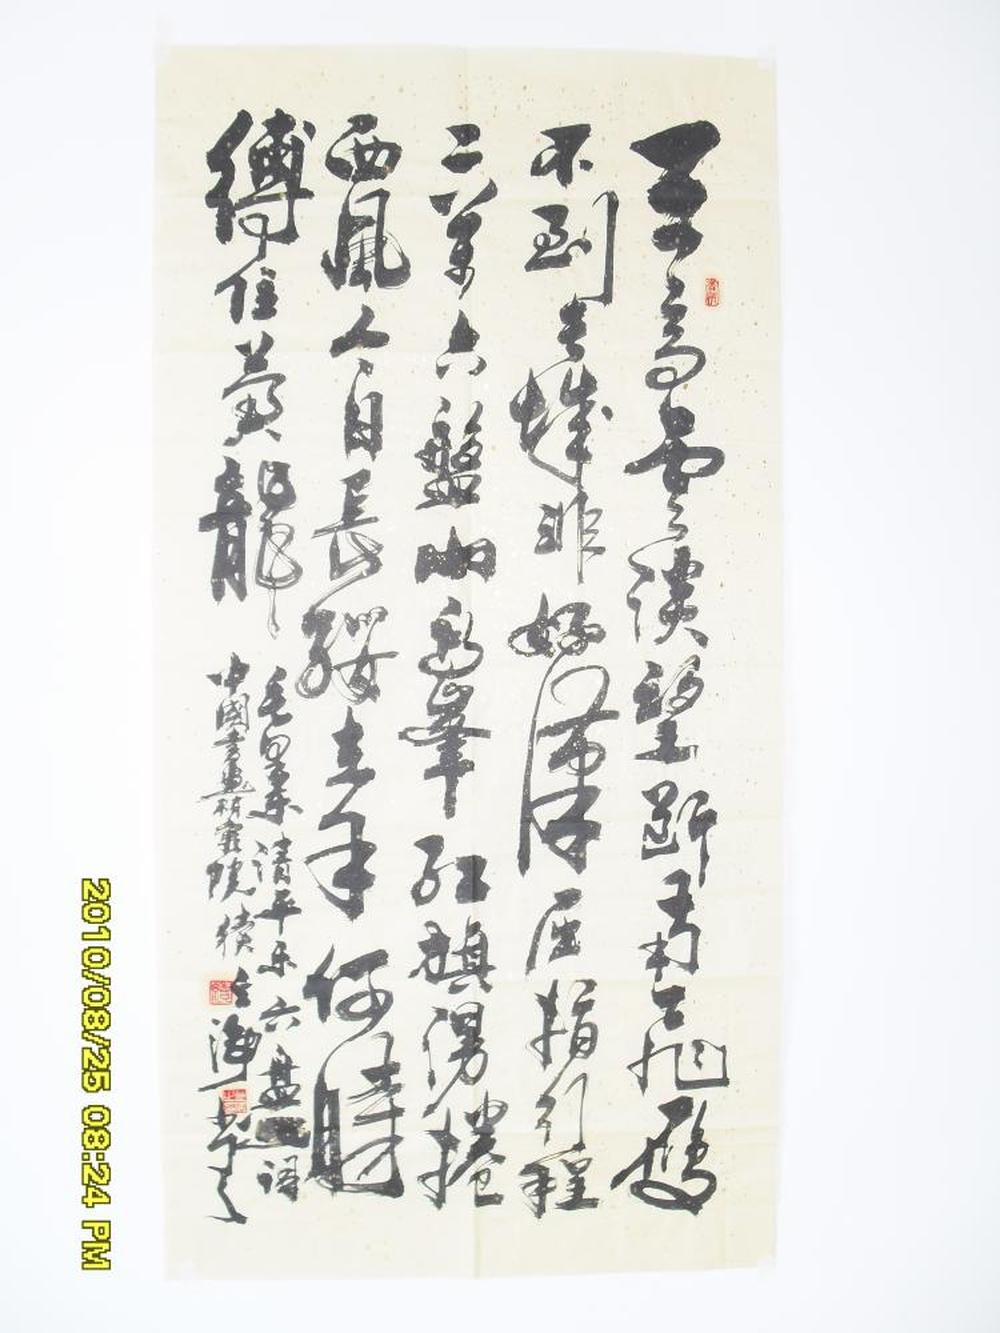 天高雲淡望斷南飛雁
不到長城非好漢屈指行程
二萬六盤山高峯紅旗漫捲
西風今日長纓在手何時
縛住龍
毛澤東清平樂六盤山詞
中國書畫研究院海
2010/08/25 08:24 PM